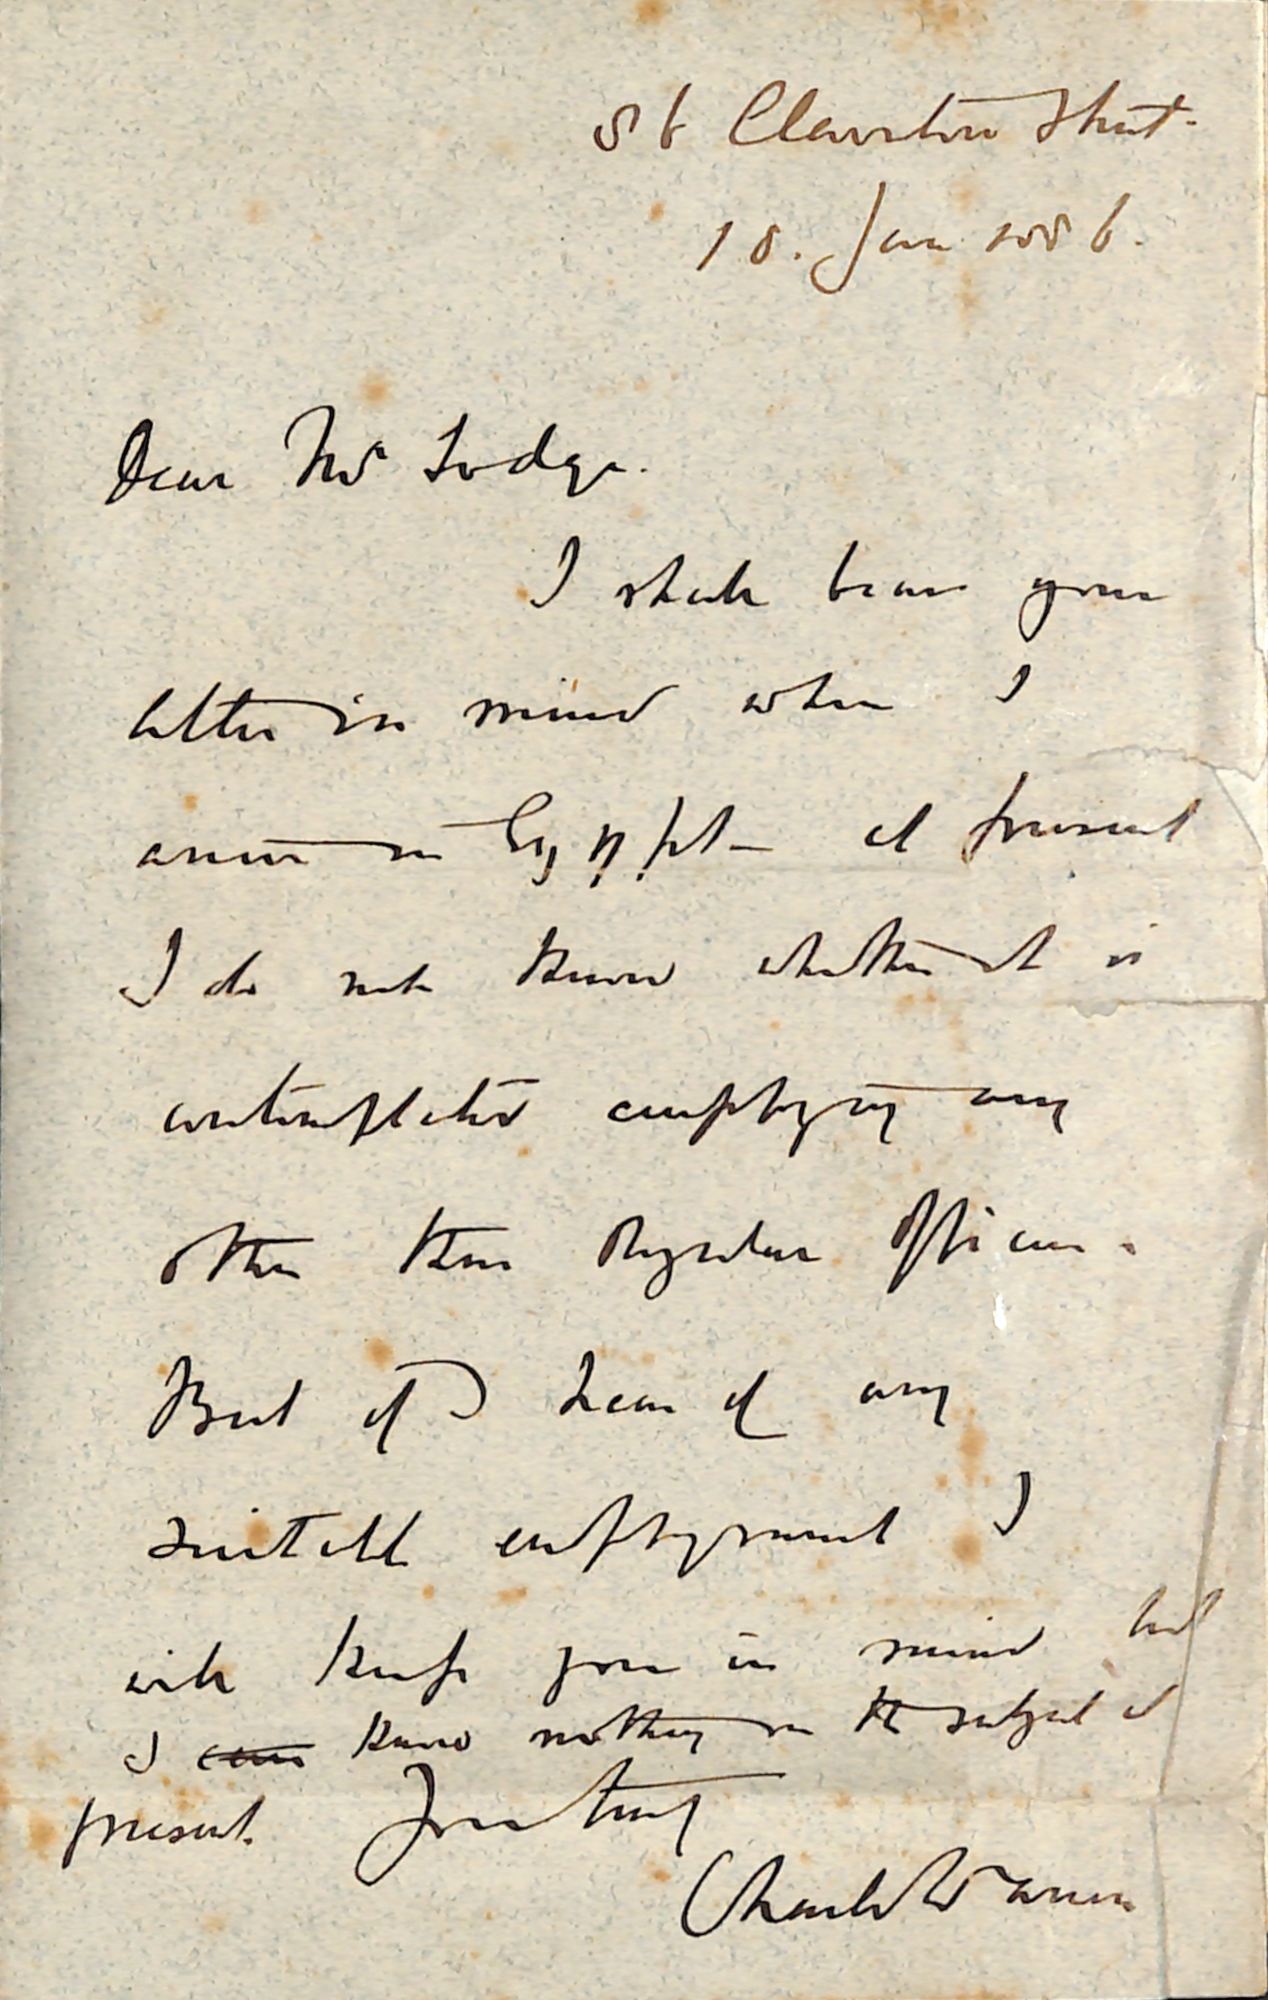 86 Claverton Street.
18. Jan 1886.
Dear Mr Lodge.
I shall bear your
letter in mind when I
arrive in Egypt - at present
I do not know whether it is
contemplated employing any
other than Regular Officers.
But if I hear of any
suitable employment I
will keep you in mind but
I know nothing on the subject at
present. Yours truly
Charles Warren